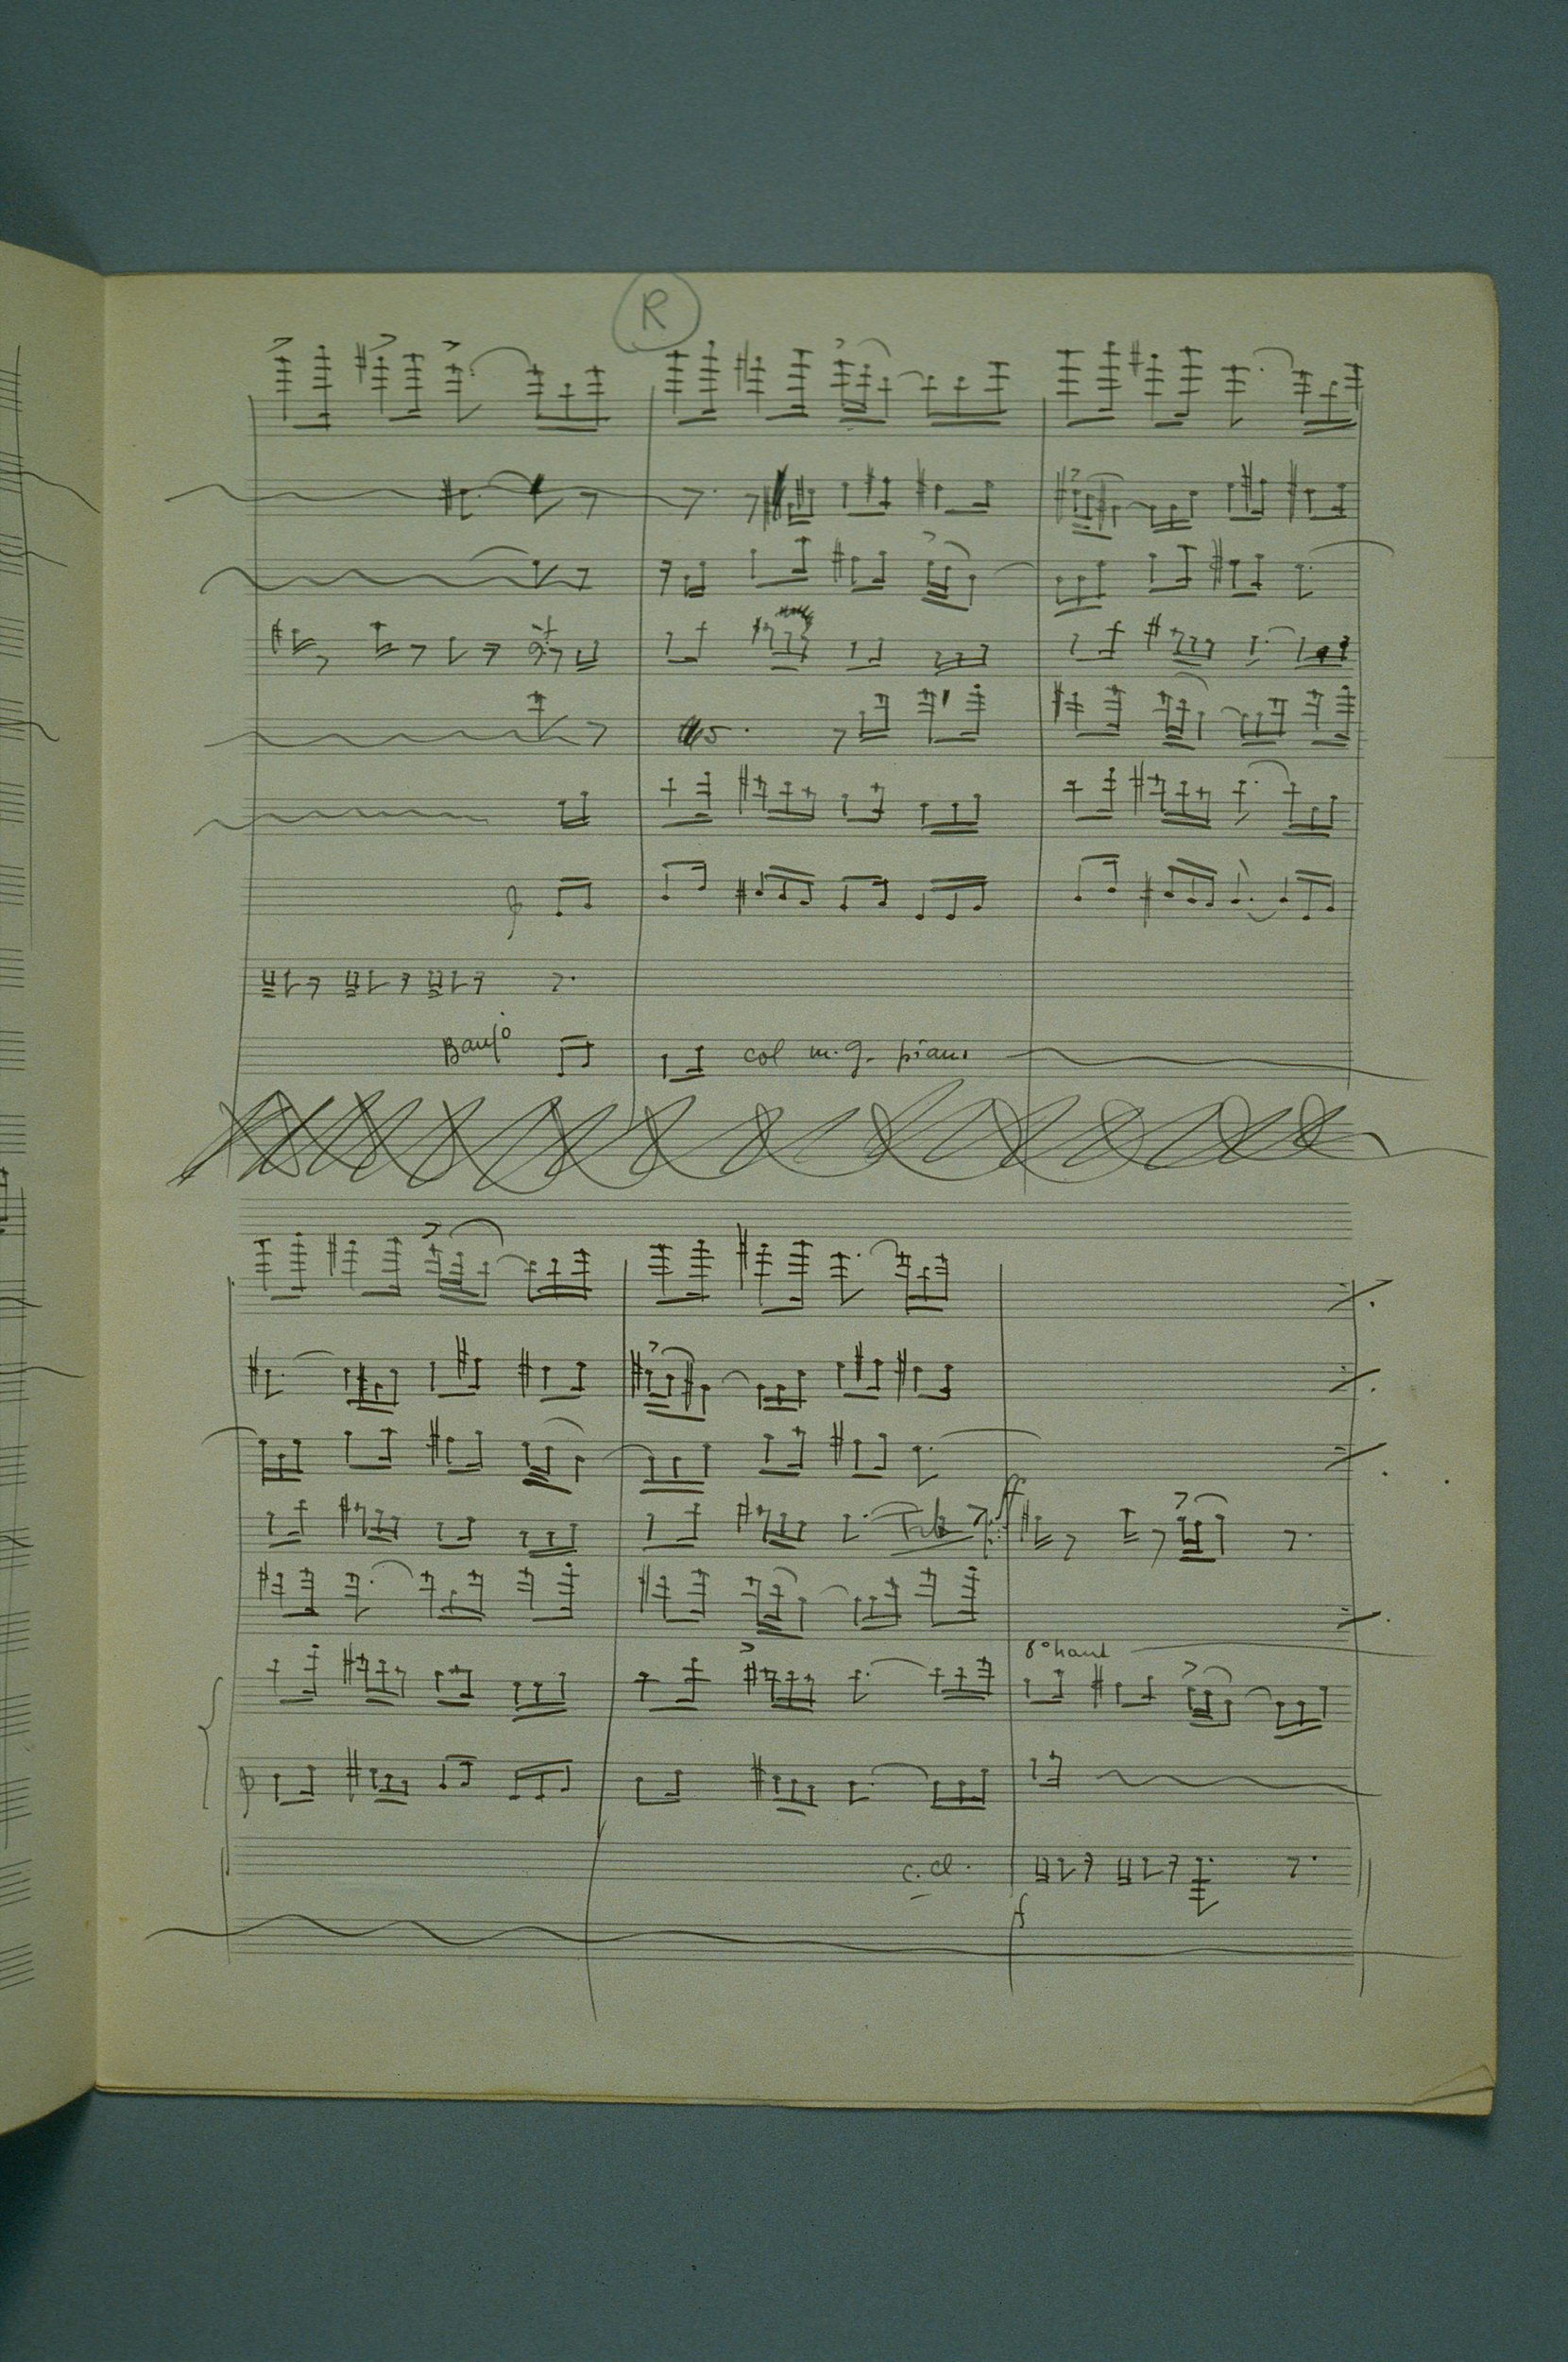 R
Banjo
col m.g. piano
ff
8º haut
c. cl.
f